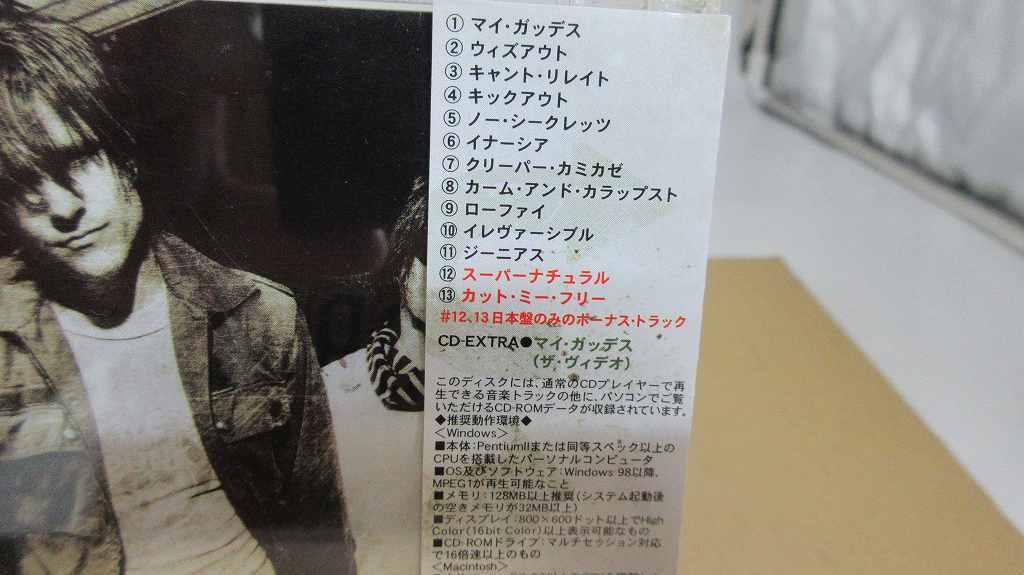 ① マイ・ガッデス
② ウィズアウト
③ キャント・リレイト
④ キックアウト
⑤ ノー・シークレッツ
⑥ イナーシア
⑦ クリーパー・カミカゼ
⑧ カーム・アンド・カラップスト
⑨ ローファイ
⑩ イレヴァーシブル
⑪ ジーニアス
⑫ スーパーナチュラル
⑬ カット・ミー・フリー
#12、13日本盤のみのボーナス・トラック
CD-EXTRA●マイ・ガッデス
(ザ・ヴィデオ)
このディスクには、通常のCDプレイヤーで再
生できる音楽トラックの他に、パソコンでご覧
いただけるCD-ROMデータが収録されています。
◆推奨動作環境◆
<Windows>
■本体:PentiumIIまたは同等スペック以上の
CPUを搭載したパーソナルコンピュータ
■OS及びソフトウェア:Windows 98以降、
MPEG1が再生可能なこと
■メモリ:128MB以上推奨(システム起動後
の空きメモリが32MB以上)
■ディスプレイ:800×600ドット以上でHigh
Color(16bit Color)以上表示可能なもの
■CD-ROMドライブ:マルチセッション対応
で16倍速以上のもの
<Macintosh>